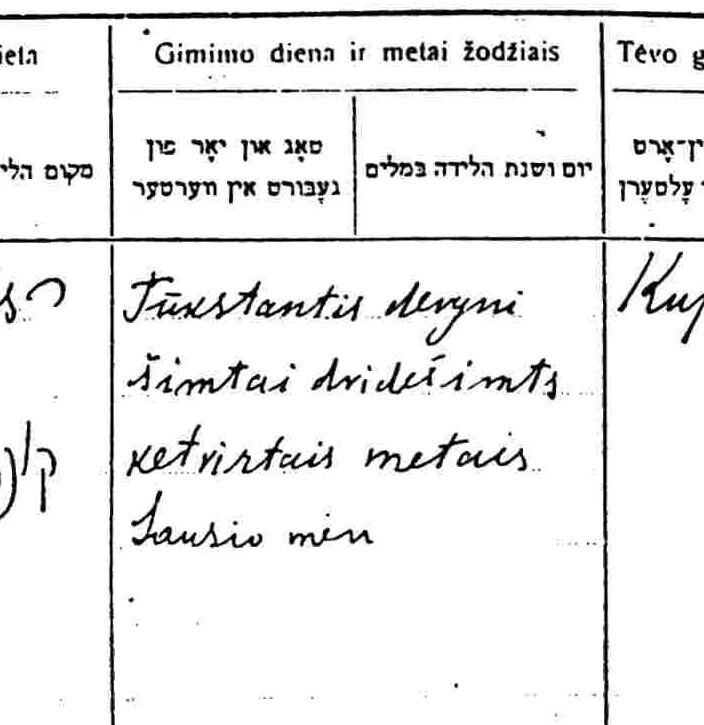 ieta
Gimimo diena ir metai žodžiais
Tėvo g
מקום הלי
טאָג און יאָר פון
געבורט אין ווערטער
יום ושנת הלידה במלים
ין־אָרט
עלטערן
Tūkstantis devyni
šimtai dvidešimts
ketvirtais metais
Sausio mėn
Kup